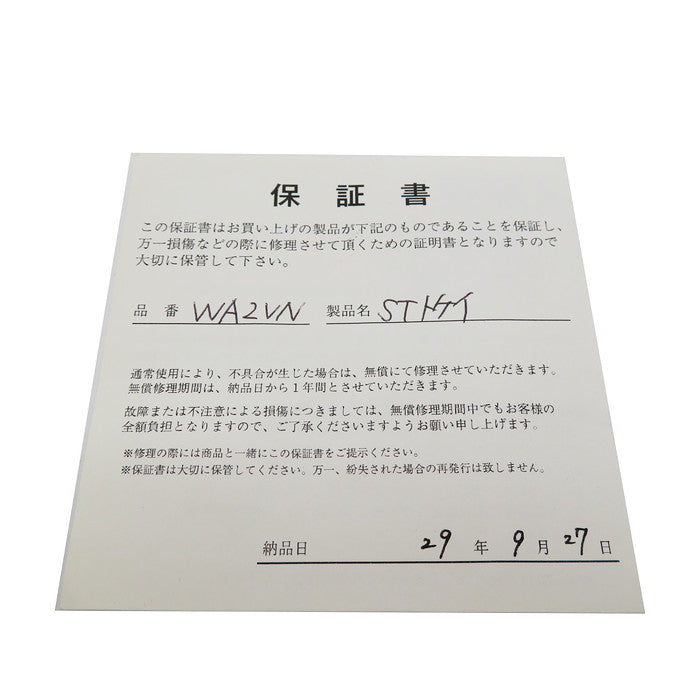 保証書
この保証書はお買い上げの製品が下記のものであることを保証し、
万一損傷などの際に修理させて頂くための証明書となりますので
大切に保管して下さい。
品番 WA2VN 製品名 STトケイ
通常使用により、不具合が生じた場合は、無償にて修理させていただきます。
無償修理期間は、納品日から1年間とさせていただきます。
故障または不注意による損傷につきましては、無償修理期間中でもお客様の
全額負担となりますので、ご了承くださいますようお願い申し上げます。
※修理の際には商品と一緒にこの保証書をご提示ください。
※保証書は大切に保管してください。万一、紛失された場合の再発行は致しません。
納品日 29年9月27日